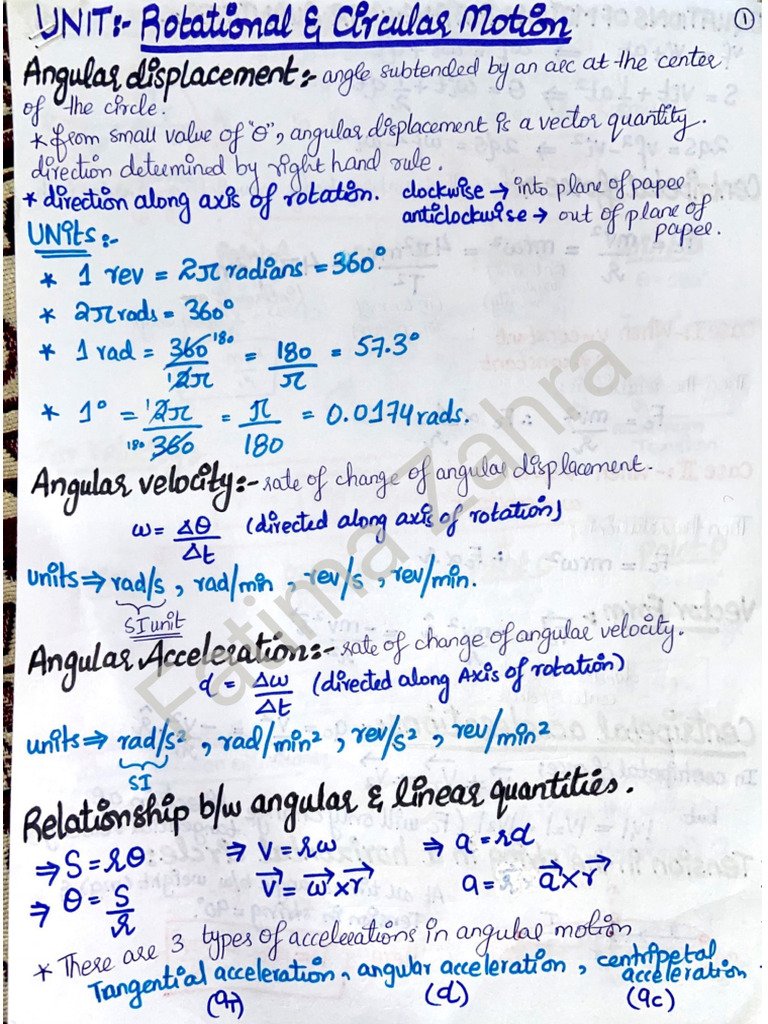 UNIT:- Rotational & Circular Motion ①
Angular displacement:- angle subtended by an arc at the center
of the circle.
* from small value of "θ", angular displacement is a vector quantity.
direction determined by right hand rule.
* direction along axis of rotation. clockwise → into plane of paper
anticlockwise → out of plane of
paper.
UNits:-
* 1 rev = 2π radians = 360°
* 2π rads = 360°
* 1 rad = 360 180 / 1 2π = 180/π = 57.3°
* 1° = 1 2π / 180 360 = π/180 = 0.0174 rads.
Angular velocity:- rate of change of angular displacement.
ω = Δθ/Δt (directed along axis of rotation)
units ⇒ rad/s, rad/min, rev/s, rev/min.
SI unit
Angular Acceleration:- rate of change of angular velocity.
α = Δω/Δt (directed along Axis of rotation)
units ⇒ rad/s², rad/min², rev/s², rev/min²
SI
Relationship b/w angular & linear quantities.
⇒ S = rθ ⇒ v = rω ⇒ a = rα
⇒ θ = S/r v⃗ = ω⃗ × r⃗ a = α⃗ × r⃗
* There are 3 types of accelerations in angular motion
Tangential acceleration, angular acceleration, centripetal
acceleration
(aT) (α) (ac)
Fatima Zahra